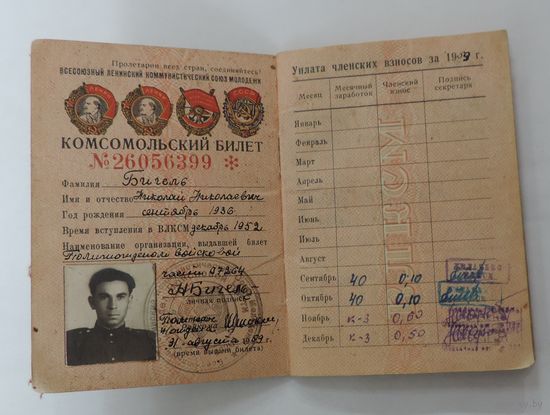 Пролетарии всех стран, соединяйтесь!
ВСЕСОЮЗНЫЙ ЛЕНИНСКИЙ КОММУНИСТИЧЕСКИЙ СОЮЗ МОЛОДЕЖИ
КОМСОМОЛЬСКИЙ БИЛЕТ
№26056399 *
Фамилия Бигель
Имя и отчество Николай Николаевич
Год рождения сентябрь 1936
Время вступления в ВЛКСМ декабрь 1952
Наименование организации, выдавшей билет
Политотделом войсковой
части 97264
НБигель
личная подпись
31 августа 1959 г.
(время выдачи билета)
Уплата членских взносов за 1959 г.
Месяц Месячный заработок Членский взнос Подпись секретаря
Январь
Февраль
Март
Апрель
Май
Июнь
Июль
Август
Сентябрь 40 0,10
Октябрь 40 0,10
Ноябрь к-з 0,60
Декабрь к-з 0,50
ay.by